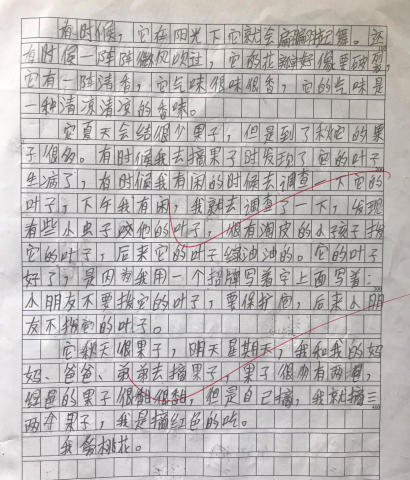 有时候，它在阳光下它就会扁扁起舞。还
有时候一阵阵微风吹过，它的花都好像要
它有一阵清香，它气味很味很香，它的气味是
一种清凉清凉的香味。
它夏天会结很少果子，但是到了秋它的果
子很多。有时候我去摘果子时发现了它的叶子
生病了，有时候我有闲的时候去调查一下它的
叶子，下午我有闲，我就去调查了一下，发现
有些小虫子咬他的叶子，很有淘皮的小孩子拔
它的叶子，后来它的叶子绿油油的。它的叶子
好了，是因为我用一个招牌写着字上面写着：
小朋友不要拔它的叶子，要保护，后来小朋
友不拔的叶子。
它秋天很果子，明天星期天，我和我的妈
妈、爸爸、弟弟去摘果子，果子很有两
红色的果子很甜很甜，但是自己摘，我就摘三
两个果子，我是摘红色的吃。
我爱桃花。